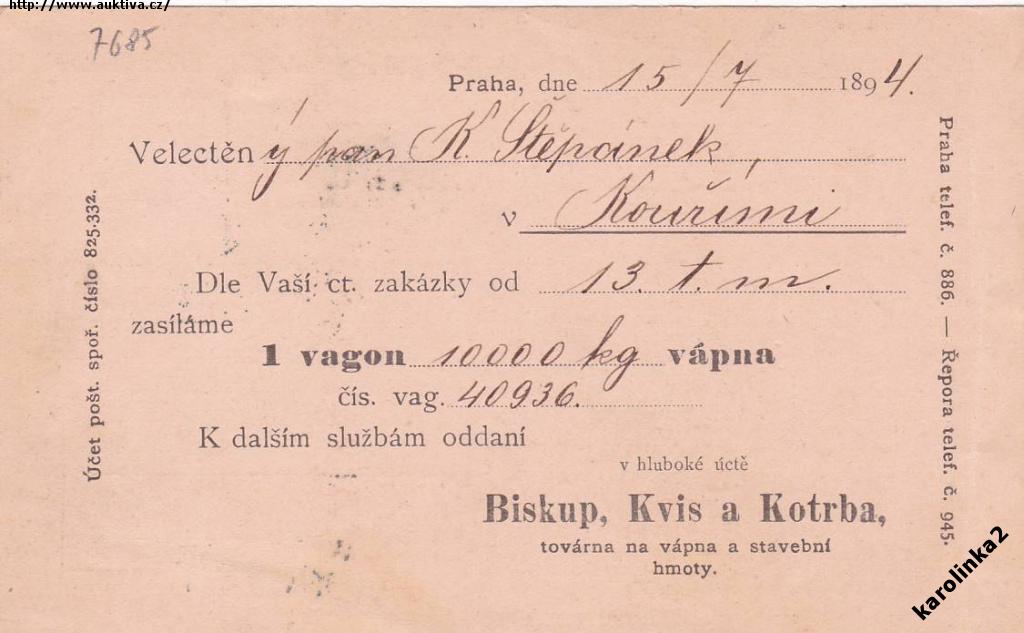 http://www.auktiva.cz/
7685
Praha, dne 15/7 1894.
Velectěný pan K. Štěpánek,
v Kouřimi
Dle Vaší ct. zakázky od 13. t. m.
zasíláme
1 vagon 10000 kg vápna
čís. vag. 40936.
K dalším službám oddaní
v hluboké úctě
Biskup, Kvis a Kotrba,
továrna na vápna a stavební
hmoty.
Účet pošt. spoř. číslo 825.332.
Praha telef. č. 886. — Řepora telef. č. 945.
karolinka2